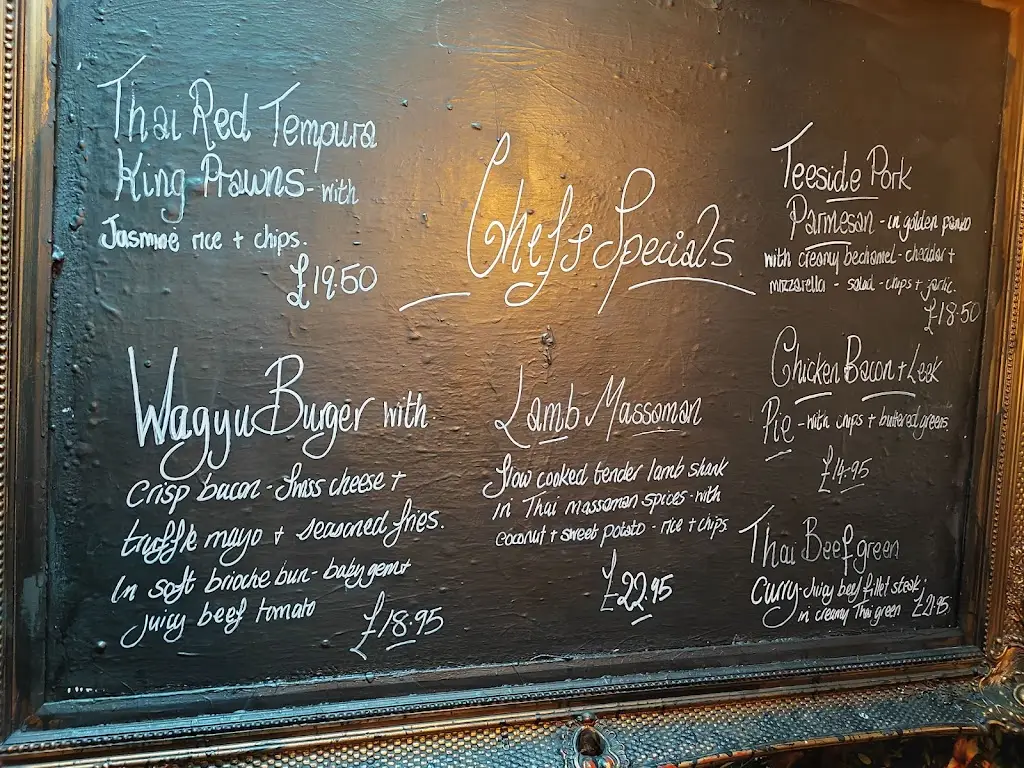 Chefs Specials
Thai Red Tempura
King Prawns - with
Jasmine rice + chips.
£19.50
Wagyu Burger with
crisp bacon - Swiss cheese +
truffle mayo + seasoned fries.
In soft brioche bun - baby gem +
juicy beef tomato
£18.95
Lamb Massaman
Slow cooked tender lamb shank
in Thai massaman spices - with
coconut + sweet potato - rice + chips
£22.95
Teeside Pork
Parmesan - in golden panko
with creamy bechamel - cheddar +
mozzarella - salad - chips + garlic.
£18.50
Chicken Bacon + Leek
Pie - with chips + buttered greens
£14.95
Thai Beef green
Curry - Juicy beef fillet steak
in creamy Thai green £21.95